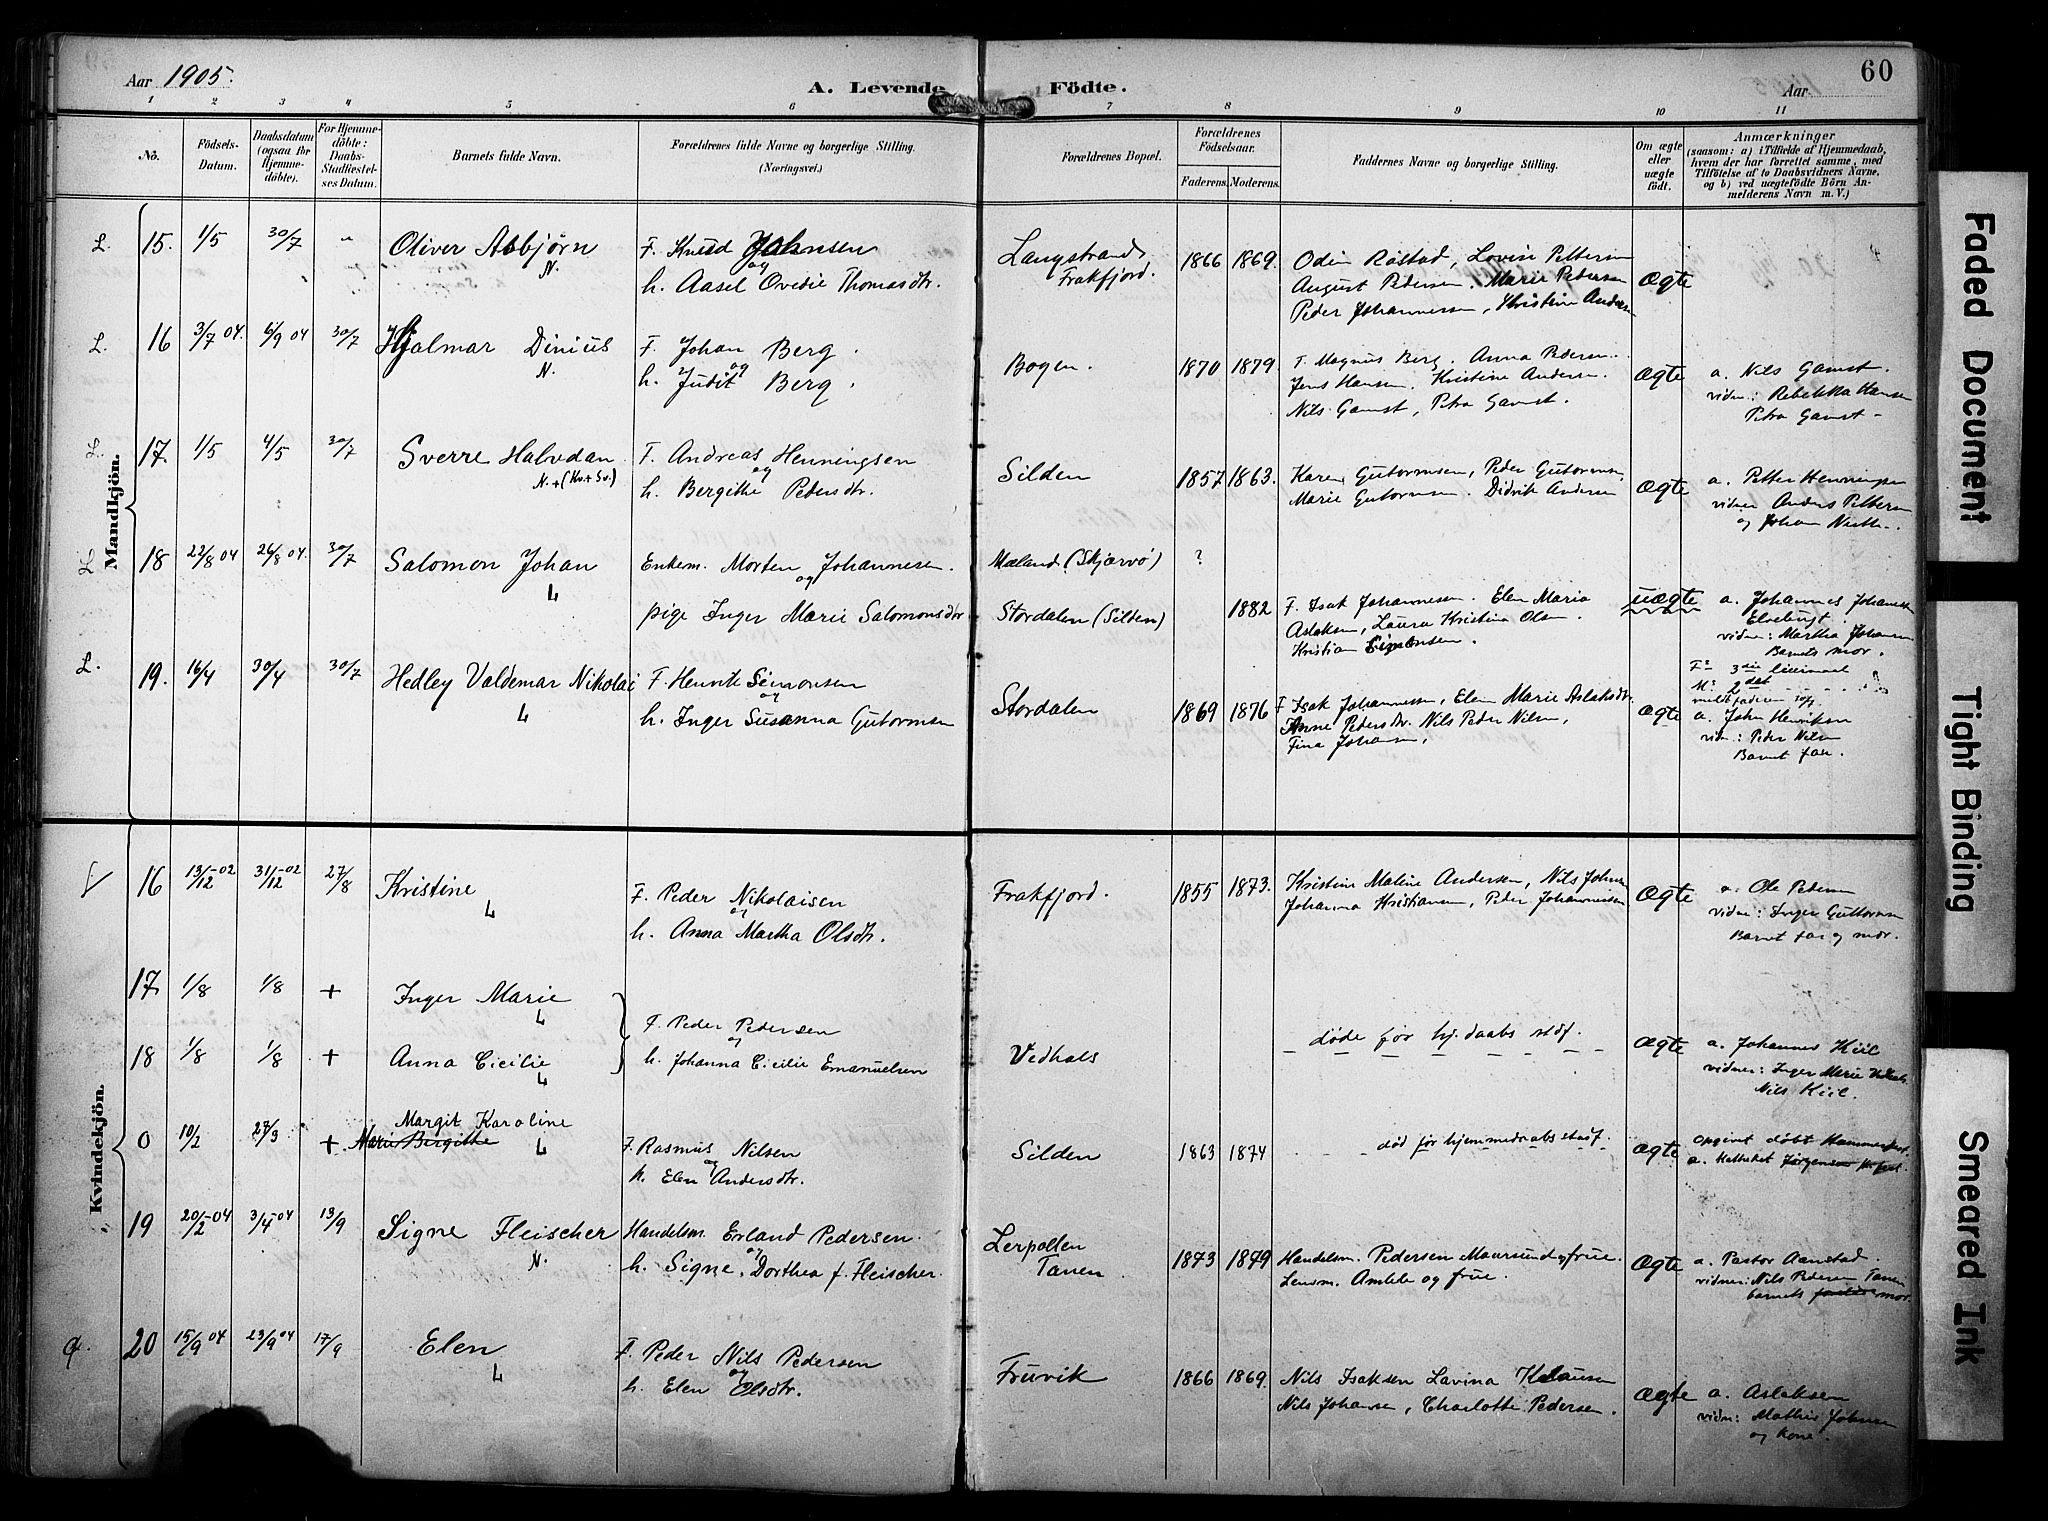 Aar 1905.
A. Levende Födte.
Aar
60
1 2 3 4 5 6 7 8 9 10 11
No.
Födsels-Datum.
Daabsdatum (ogsaa for Hjemme-döbte).
For Hjemme-döbte: Daabs-Stadfæstel-ses Datum.
Barnets fulde Navn.
Forældrenes fulde Navne og borgerlige Stilling. (Næringsvei.)
Forældrenes Bopæl.
Forældrenes Födselsaar.
Faderens. Moderens.
Faddernes Navne og borgerlige Stilling.
Om ægte eller uægte födt.
Anmærkninger
(saasom: a) i Tilfælde af Hjemmedaab, hvem der har forrettet samme, med Tilföielse af to Daabsvidners Navne, og b) ved uægtefödte Börn An-melderens Navn m. V.)
Mandkjön.
L. 15. 1/5 30/7 " Oliver Asbjørn F. Knud Johnsen Langstrand 1866 1869. Odin Røstad, Lovise Pettersen
N. og Frakfjord. August Pedersen. Marie Pedersen ægte
h. Aasel Ovedie Thomasdtr. Peder Johannessen, Kristine Andersen
L. 16 3/7 04. 6/9 04 30/7 Hjalmar Dinius F. Johan Berg. Bogen. 1870 1879. F. Magnus Berg. Anna Pedersen. ægte a. Nils Gamst.
N. og Jens Hansen. Kristine Andersen. vidner: Rebekka Hansen
h. Judit Berg. Nils Gamst, Petra Gamst. Petra Gamst -
L 17. 1/5 4/5 30/7 Sverre Halvdan F. Andreas Henningsen Silden 1857 1863. Karen Gutormsen, Peder Gutormsen ægte a. Petter Henningsen
N. + (Kv. + Sv.) og Marie Gutormsen. Didrik Andersen vidner Anders Pettersen
h. Bergithe Pedersdtr. og Johan
L 18 22/8 04 26/8 04. 30/7 Salomon Johan Enkem. Morten Johannesen. Mæland (Skjærvö) ?
L og
pige Inger Marie Salomonsdtr Stordalen (Silden) 1882 F. Isak Johannesen. Elen Maria uægte a. Johannes Johannesen
Aslaksen, Laura Kristina Olsen. Elvebugt.
Kristian Simonsen. vidner: Martha Johansen
Barnets mor.
F: 3die
M: 2det
L. 19. 16/4 30/4 30/7 Hedley Valdemar Nikolai F. Henrik Simonsen Stordalen 1869 1876 F Isak Johannessen, Elen Marie Aslaksdtr. ægte a. John Henriksen
L og Anne Pedersdtr. Nils Peder Nilsen, vidn: Peder Nilsen
h. Inger Susanna Gutormsen Fina Johansen, Barnet far.
Kvindekjön.
16 13/12-02 31/12-02 27/8 Kristine F. Peder Nikolaisen Frakfjord. 1855 1873. Kristine Maline Andersen, Nils Johnsen ægte a. Ole Pedersen
L og Johanna Kristiansen, Peder Johannessen vidner: Inger Guttormsen
h. Anna Martha Olsdtr. Barnet far og mor.
17. 1/8 1/8 + Inger Marie
L F. Peder Pedersen døde før hj.daabs stdf.
18 1/8 1/8 + Anna Cicilie og Vedhals ægte a. Johannes Kiil
L h. Johanna Cicilie Emanuelsen vidner: Inger Marie
Nils Kiil.
Margit Karoline
0 10/2 27/3 + Marie Bergithe L F. Rasmus Nilsen Silden 1863 1874 død før hjemmedaabs stadf. ægte opgivet døbt Hammerfest.
og a. Kattekel Jørgensen H.fest.
h. Elen Andersdtr.
19 20/2-04 3/4-04 13/9 Signe Fleischer Handelsm. Erland Pedersen. Lerpollen 1873 1879 Handelsm. Pedersen Maursund og frue. ægte a. Pastor Aanstad.
N. og Tanen Lensm. Amble og frue. vidner: Nils Pedersen Tanen
h. Signe Dorthea f. Fleischer. barnets mor.
20 15/9 04 23/9 04 17/9 Elen F. Peder Nils Pedersen Fruvik 1866 1869. Nils Isaksen Lavina Klausen ægte a. Aslaksen
L og Nils Johansen, Charlotte Pedersen. vidn: Mathis Johnsen
h. Elen Olsdtr. og Kone.
Faded Document
Tight Binding
Smeared Ink